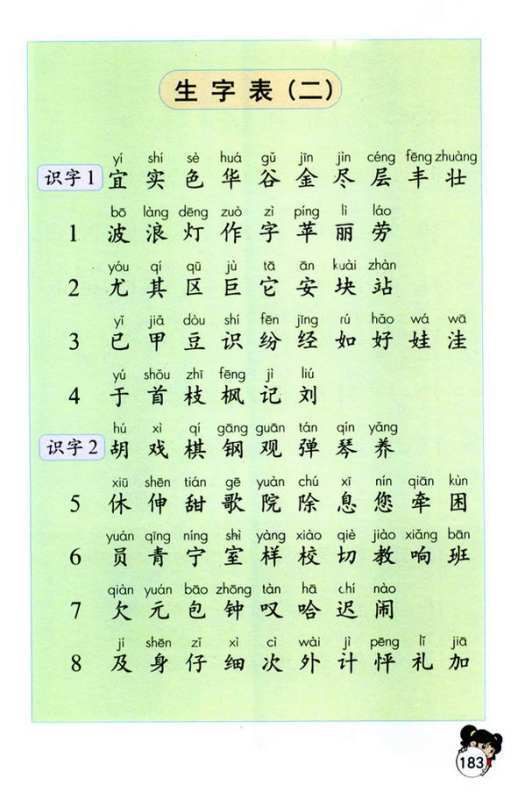 生字表(二)
yí shí sè huá gǔ jīn jìn céng fēng zhuàng
识字1 宜 实 色 华 谷 金 尽 层 丰 壮
bō làng dēng zuò zì píng lì láo
1 波 浪 灯 作 字 苹 丽 劳
yóu qí qū jù tā ān kuài zhàn
2 尤 其 区 巨 它 安 块 站
yǐ jiǎ dòu shí fēn jīng rú hǎo wá wā
3 已 甲 豆 识 纷 经 如 好 娃 洼
yú shǒu zhī fēng jì liú
4 于 首 枝 枫 记 刘
hú xì qí gāng guān tán qín yǎng
识字2 胡 戏 棋 钢 观 弹 琴 养
xiū shēn tián gē yuàn chú xī nín qiān kùn
5 休 伸 甜 歌 院 除 息 您 牵 困
yuán qīng níng shì yàng xiào qiè jiào xiǎng bān
6 员 青 宁 室 样 校 切 教 响 班
qiàn yuán bāo zhōng tàn hā chí nào
7 欠 元 包 钟 叹 哈 迟 闹
jí shēn zǐ xì cì wài jì pēng lǐ jiā
8 及 身 仔 细 次 外 计 怦 礼 加
183